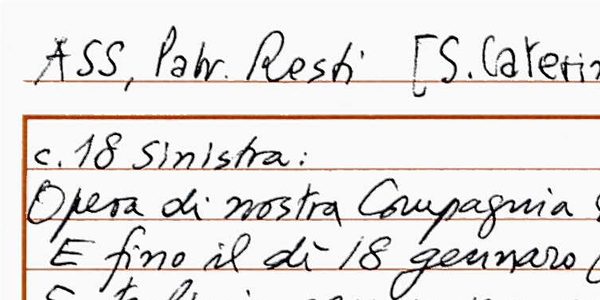 ASS, Patr. Resti [S. Caterin
c. 18 sinistra:
Opera di nostra Compagnia
E fino il dì 18 gennaro